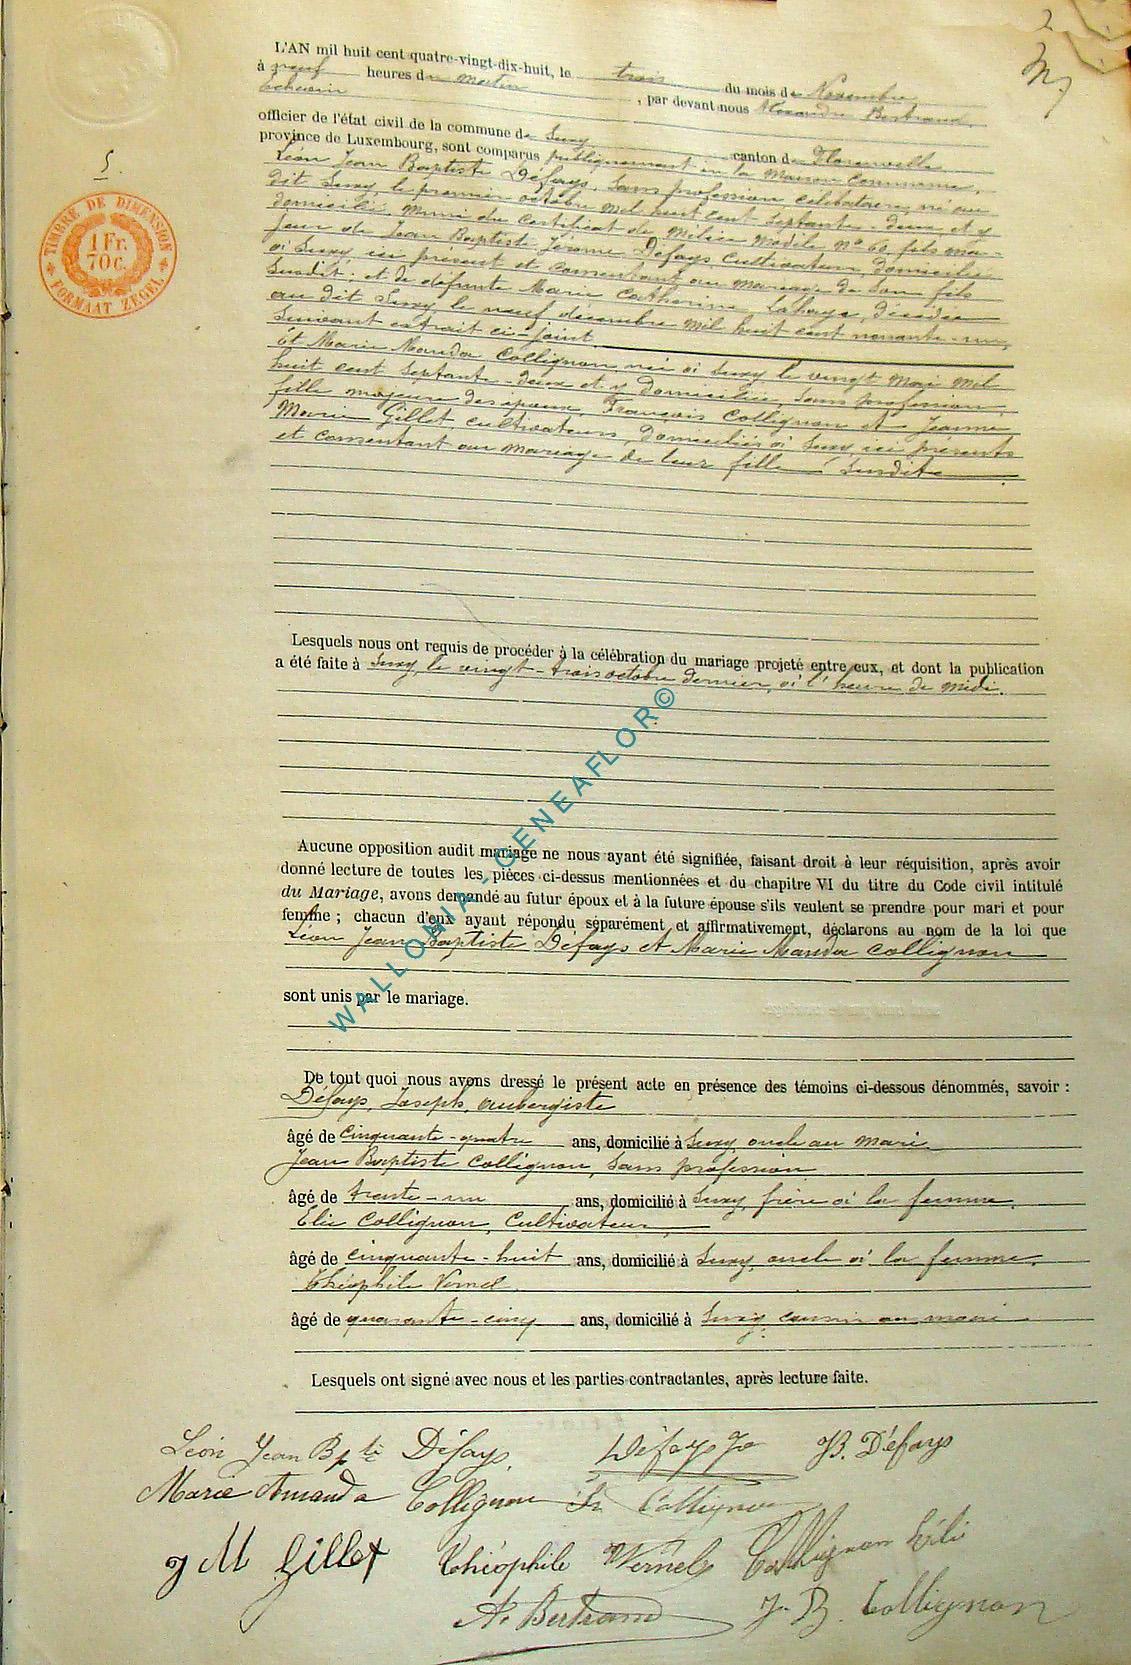 2
5.
TIMBRE DE DIMENSION
1 Fr.
70 c.
FORMAAT ZEGEL
L'AN mil huit cent quatre-vingt-dix-huit, le trois du mois de Novembre
à neuf heures du matin, par devant nous Alexandre Bertrand,
échevin
officier de l'état civil de la commune de Suxy canton de Florenville
province de Luxembourg, sont comparus publiquement en la Maison Commune,
Léon Jean Baptiste Défays, sans profession célibataire, né au
dit Suxy, le premier octobre mil huit cent septante-deux et y
domicilié, muni du certificat de Milice Modèle n° 60, fils ma-
jeur de Jean Baptiste Jérome Défays, cultivateur, domicilié
à Suxy, ici présent et consentant au mariage de son fils
susdit; et de défunte Marie Catherine Lahaye, décédée
au dit Suxy, le neuf décembre mil huit cent nonante-un,
suivant extrait ci-joint
Et Marie Manda Collignon née à Suxy le vingt Mai mil
huit cent septante-deux et y domiciliée, sans profession,
fille majeure des époux François Collignon et Jeanne
Marie Gillet cultivateurs, domiciliés à Suxy, ici présents
et consentant au mariage de leur fille susdite
Lesquels nous ont requis de procéder à la célébration du mariage projeté entre eux, et dont la publication
a été faite à Suxy, le vingt-trois octobre dernier, à l'heure de midi.
Aucune opposition audit mariage ne nous ayant été signifiée, faisant droit à leur réquisition, après avoir
donné lecture de toutes les pièces ci-dessus mentionnées et du chapitre VI du titre du Code civil intitulé
du Mariage, avons demandé au futur époux et à la future épouse s'ils veulent se prendre pour mari et pour
femme ; chacun d'eux ayant répondu séparément et affirmativement, déclarons au nom de la loi que
Léon Jean Baptiste Défays et Marie Manda Collignon
sont unis par le mariage.
De tout quoi nous avons dressé le présent acte en présence des témoins ci-dessous dénommés, savoir :
Défays, Joseph, aubergiste
âgé de cinquante-quatre ans, domicilié à Suxy oncle au mari
Jean Baptiste Collignon, sans profession
âgé de trente-un ans, domicilié à Suxy, frère à la femme.
Elie Collignon, cultivateur,
âgé de cinquante-huit ans, domicilié à Suxy, oncle à la femme.
Théophile Vernel
âgé de quarante-cinq ans, domicilié à Suxy, cousin au mari
Lesquels ont signé avec nous et les parties contractantes, après lecture faite.
Léon Jean Bpte Défays. Défays Jo JB. Défays
Marie Amanda Collignon Fr Collignon
J M Gillet Théophile Vernel Collignon Elie
A. Bertrand J. B. Collignon
WALLONIA-GENEAFLOR©